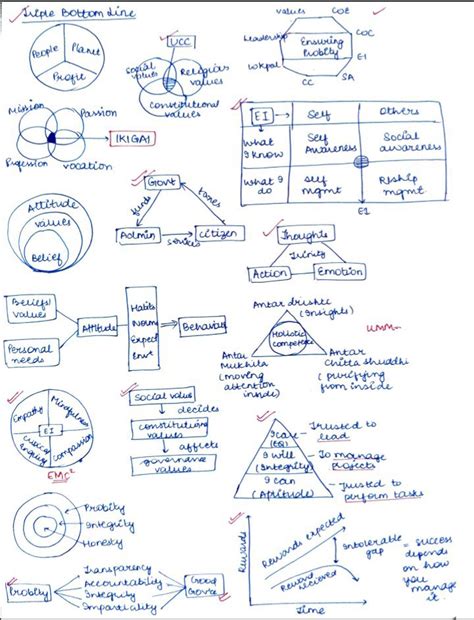 Triple Bottom Line
People
Planet
Profit
UCC
Social
values
Religious
values
Constitutional
values
values
COE
Leadership
COC
Ensuring
Probity
EI
Wkpal
CC
SA
Mission
Passion
IKIGAI
Profession
Vocation
EI
Self
Others
What
I know
Self
Awareness
Social
awareness
What I
do
Self
mgmt
Rlship
mgmt
EI
Attitude
values
Belief
Govt
funds
taxes
Admin
services
citizen
Thoughts
Trinity
Action
Emotion
Beliefs/
values
Personal
needs
Attitude
Habits
Norms
Expect
Envt
Behaviour
Antar drushti
(Insights)
Holistic
competency
Antar
Mukhita
(moving
attention
inside)
Antar
Chitta Shuddhi
(purifying
from inside
Empathy
Mindfulness
EI
inquiry
compassion
EMC²
Social values
decides
constitutional
values
affects
governance
values
I care
(EQ)
- Trusted to
lead
I will
(Integrity)
- To manage
projects
I can
(Aptitude)
- Trusted to
perform tasks
Probity
Integrity
Honesty
Probity
Transparency
Accountability
Integrity
Impartiality
Good
Gov'ce
Rewards
Rewards expected
Rewards received
Intolerable
gap
= success
depends
on how
you
manage
it.
Time